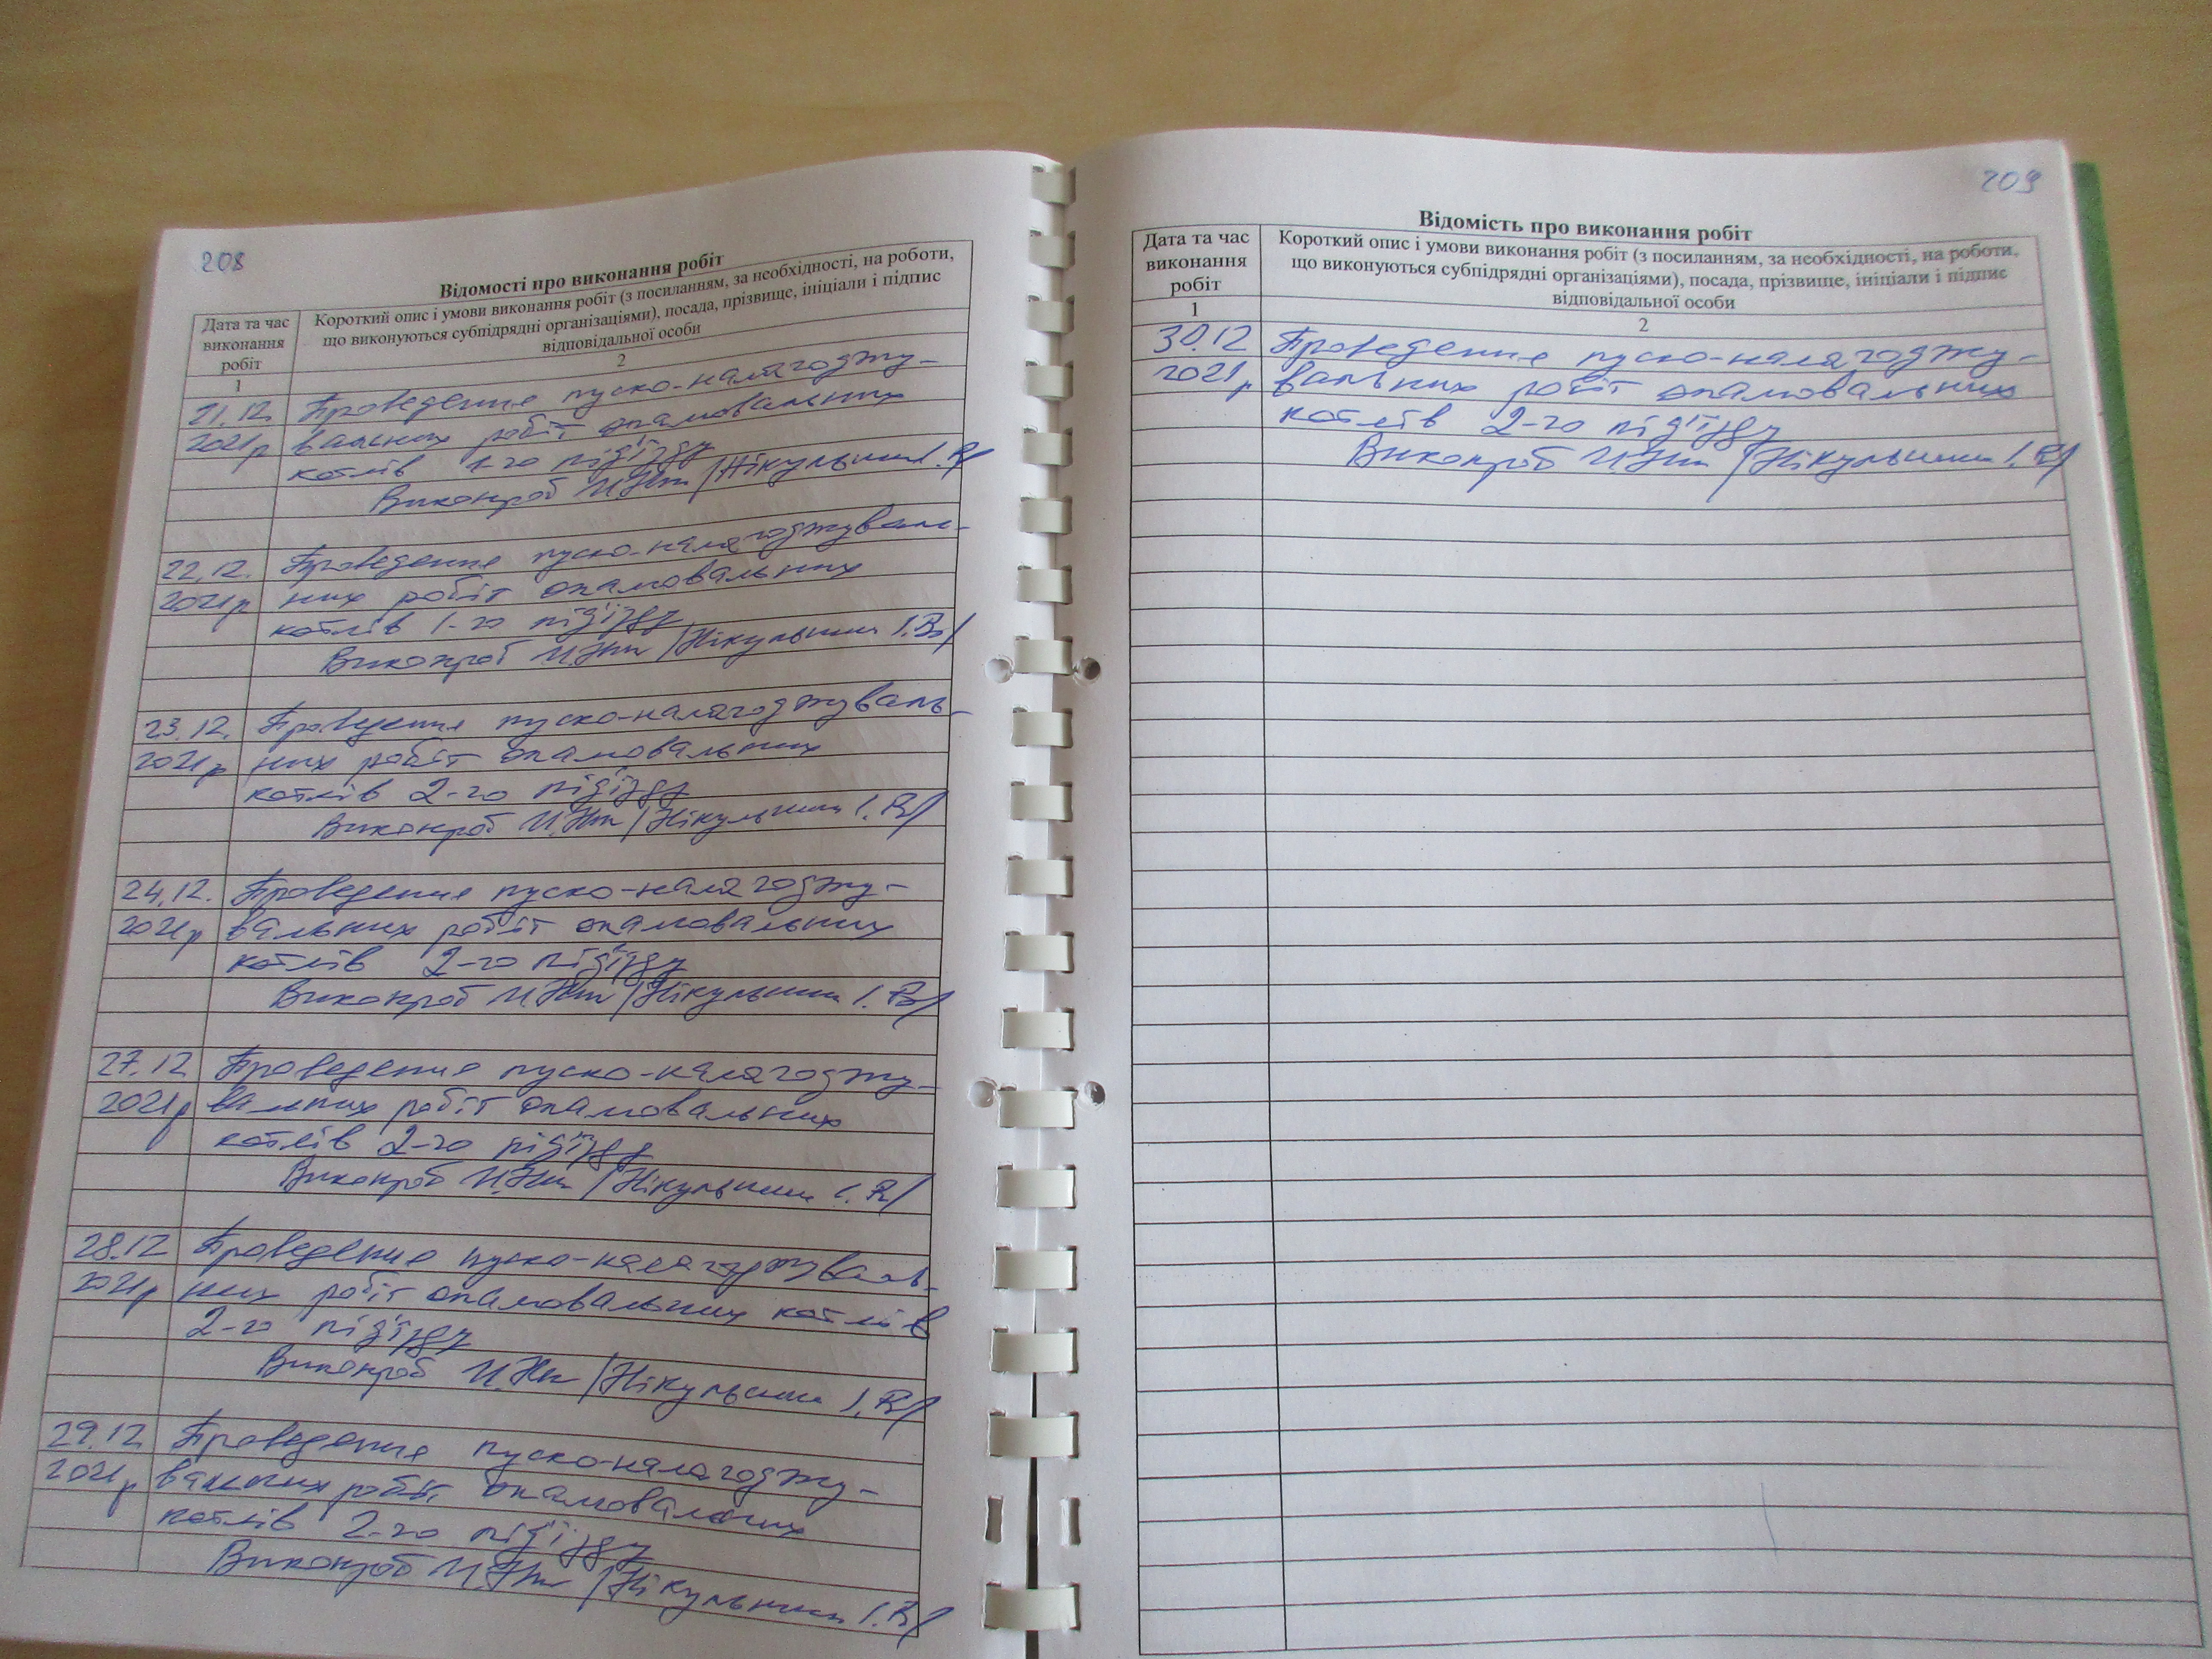 208
Відомості про виконання робіт
Дата та час виконання робіт
Короткий опис і умови виконання робіт (з посиланням, за необхідності, на роботи,
що виконуються субпідрядні організаціями), посада, прізвище, ініціали і підпис
відповідальної особи
1 2
21.12. Проведення пуско-налагоджу-
2021р вальних робіт опалювальних
котлів 1-го під'їзду
Виконроб /Нікульшин І.В/
22.12. Проведення пуско-налагоджуваль-
2021р них робіт опалювальних
котлів 1-го під'їзду
Виконроб /Нікульшин І.В/
23.12. Проведення пуско-налагоджуваль-
2021р них робіт опалювальних
котлів 2-го під'їзду
Виконроб /Нікульшин І.В/
24.12. Проведення пуско-налагоджу-
2021р вальних робіт опалювальних
котлів 2-го під'їзду
Виконроб /Нікульшин І.В/
27.12 Проведення пуско-налагоджу-
2021р вальних робіт опалювальних
котлів 2-го під'їзду
Виконроб /Нікульшин І.В/
28.12 Проведення пуско-налагоджуваль-
2021р них робіт опалювальних котлів
2-го під'їзду
Виконроб /Нікульшин І.В/
29.12 Проведення пуско-налагоджу-
2021р вальних робіт опалювальних
котлів 2-го під'їзду
Виконроб /Нікульшин І.В/
209
Відомість про виконання робіт
Дата та час
виконання
робіт
Короткий опис і умови виконання робіт (з посиланням, за необхідності, на роботи,
що виконуються субпідрядні організаціями), посада, прізвище, ініціали і підпис
відповідальної особи
1 2
30.12 Проведення пуско-налагоджу-
2021р вальних робіт опалювальних
котлів 2-го під'їзду
Виконроб /Нікульшин І.В/